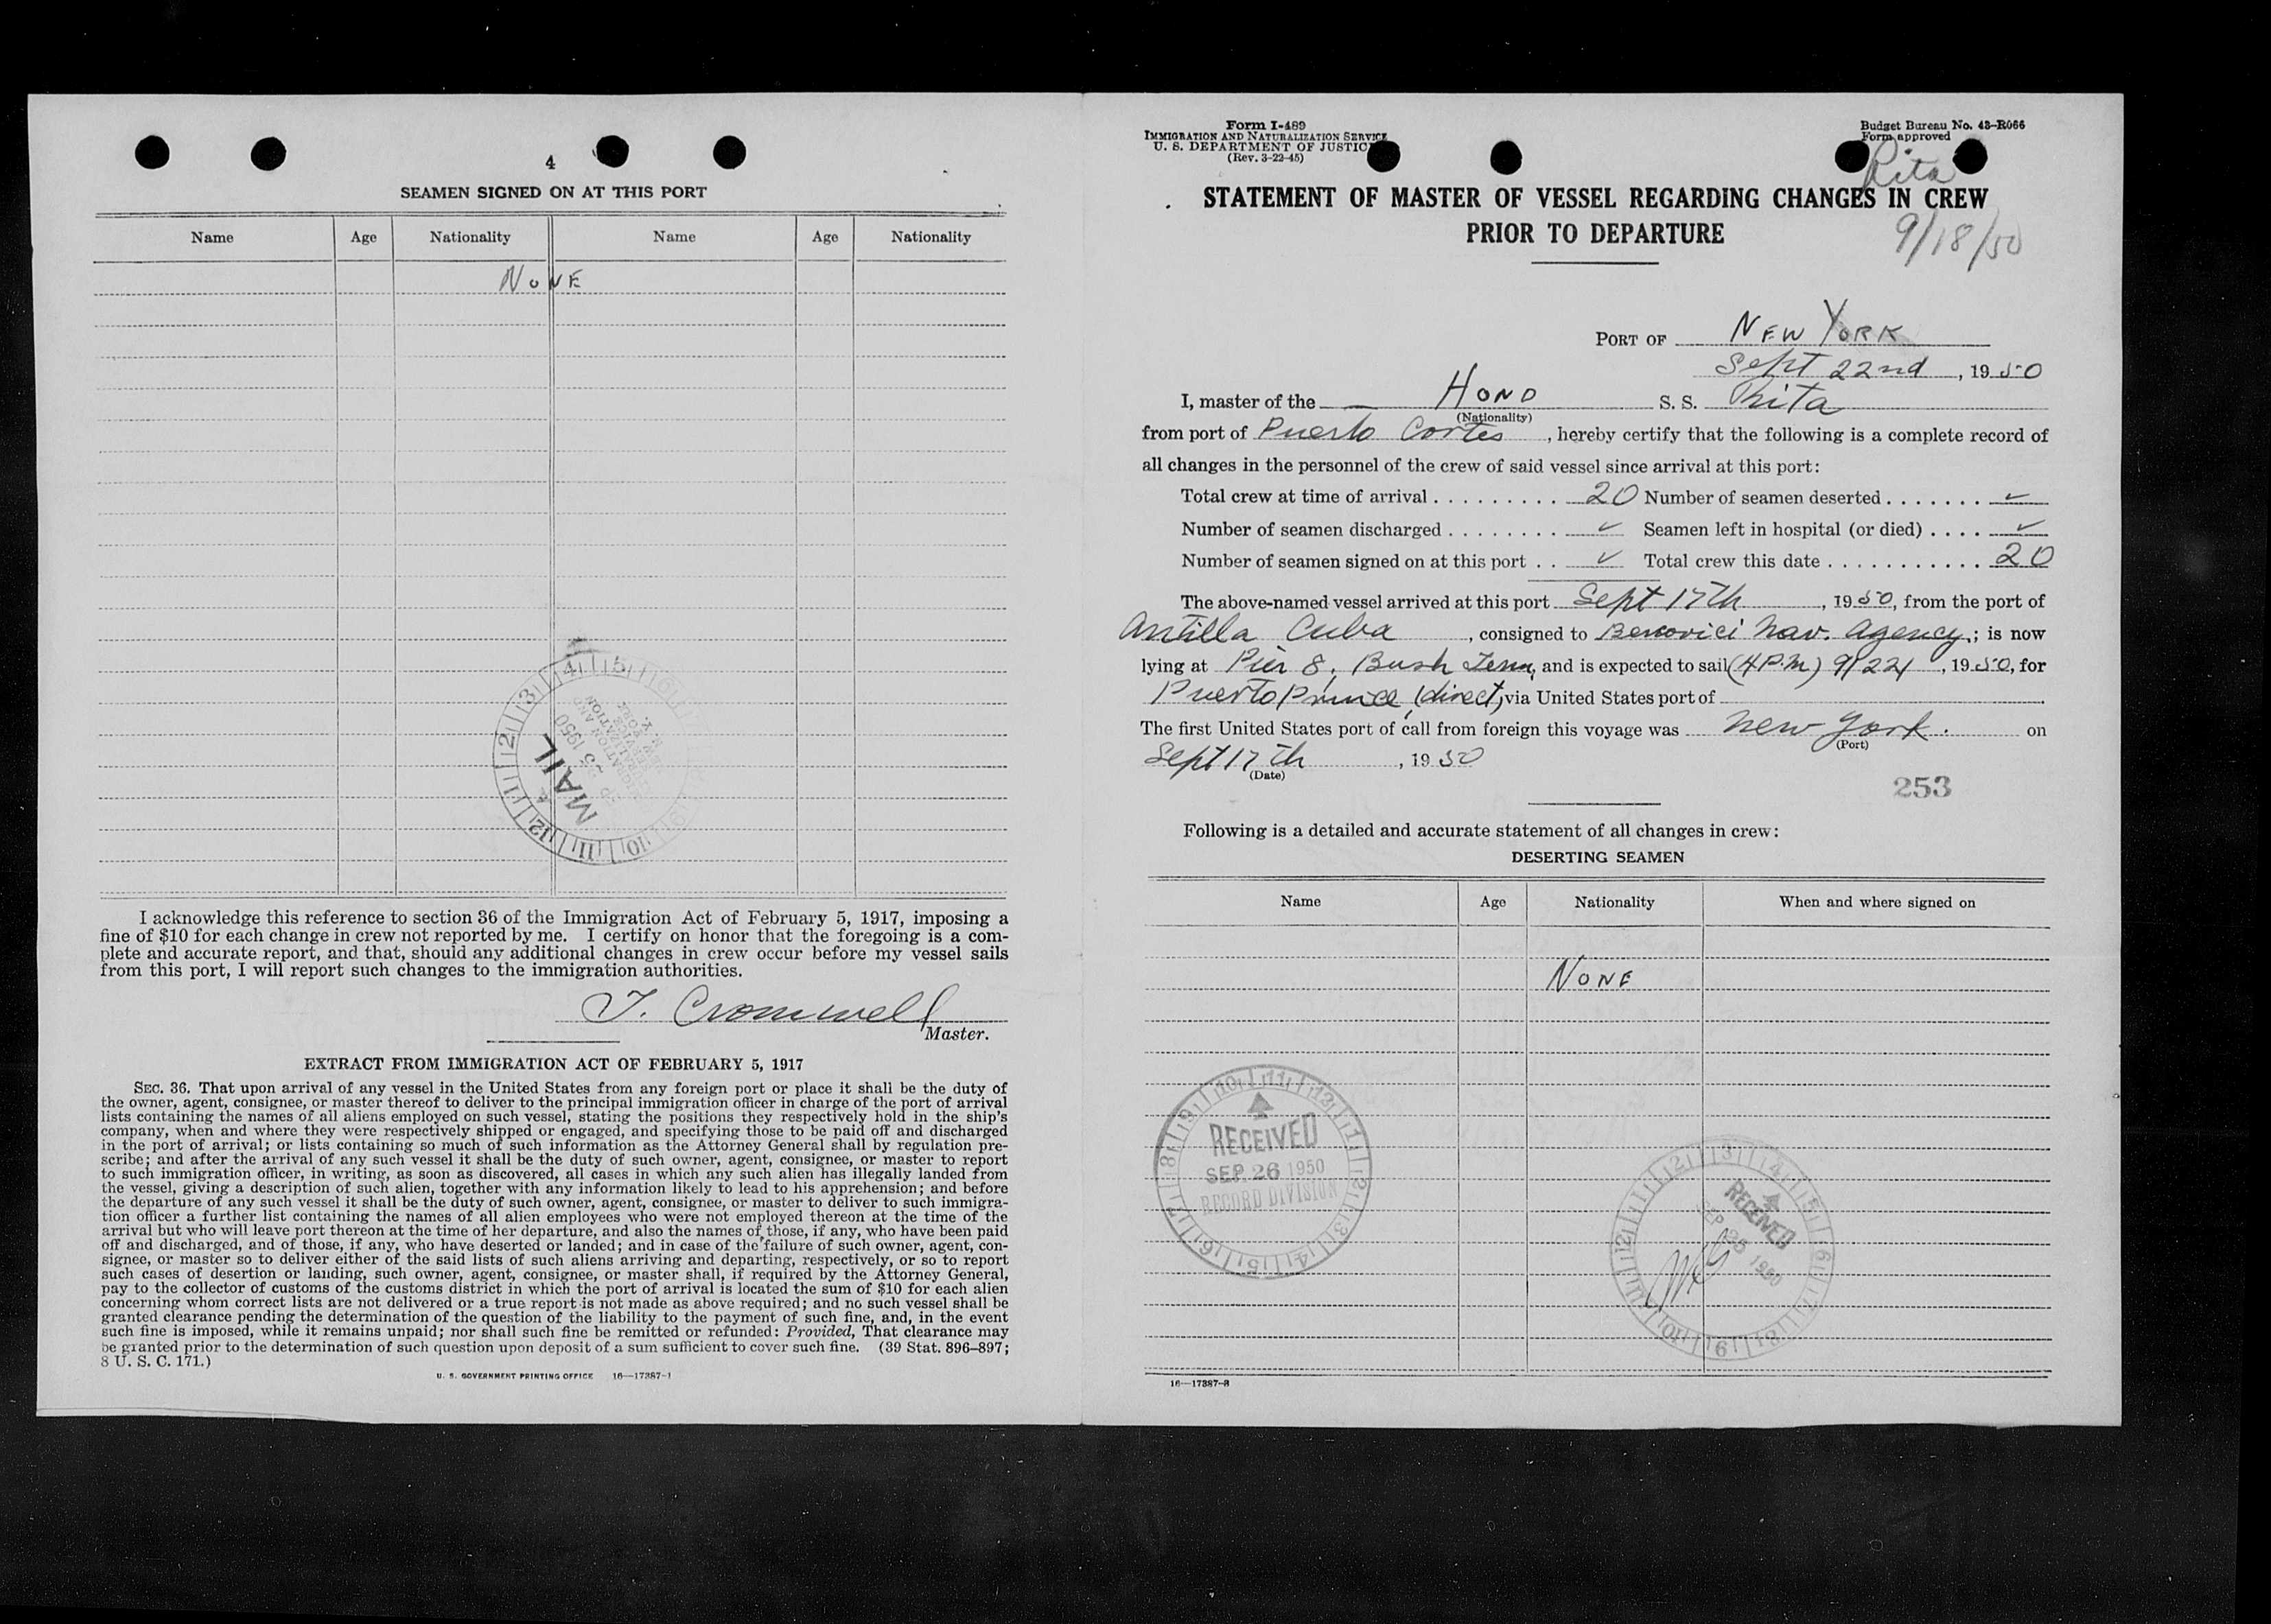 4
SEAMEN SIGNED ON AT THIS PORT
Name Age Nationality Name Age Nationality
NONE
MAIL
1950
I acknowledge this reference to section 36 of the Immigration Act of February 5, 1917, imposing a
fine of $10 for each change in crew not reported by me. I certify on honor that the foregoing is a com-
plete and accurate report, and that, should any additional changes in crew occur before my vessel sails
from this port, I will report such changes to the immigration authorities.
T. Cromwell
Master.
EXTRACT FROM IMMIGRATION ACT OF FEBRUARY 5, 1917
SEC. 36. That upon arrival of any vessel in the United States from any foreign port or place it shall be the duty of
the owner, agent, consignee, or master thereof to deliver to the principal immigration officer in charge of the port of arrival
lists containing the names of all aliens employed on such vessel, stating the positions they respectively hold in the ship's
company, when and where they were respectively shipped or engaged, and specifying those to be paid off and discharged
in the port of arrival; or lists containing so much of such information as the Attorney General shall by regulation pre-
scribe; and after the arrival of any such vessel it shall be the duty of such owner, agent, consignee, or master to report
to such immigration officer, in writing, as soon as discovered, all cases in which any such alien has illegally landed from
the vessel, giving a description of such alien, together with any information likely to lead to his apprehension; and before
the departure of any such vessel it shall be the duty of such owner, agent, consignee, or master to deliver to such immigra-
tion officer a further list containing the names of all alien employees who were not employed thereon at the time of the
arrival but who will leave port thereon at the time of her departure, and also the names of those, if any, who have been paid
off and discharged, and of those, if any, who have deserted or landed; and in case of the failure of such owner, agent, con-
signee, or master so to deliver either of the said lists of such aliens arriving and departing, respectively, or so to report
such cases of desertion or landing, such owner, agent, consignee, or master shall, if required by the Attorney General,
pay to the collector of customs of the customs district in which the port of arrival is located the sum of $10 for each alien
concerning whom correct lists are not delivered or a true report is not made as above required; and no such vessel shall be
granted clearance pending the determination of the question of the liability to the payment of such fine, and, in the event
such fine is imposed, while it remains unpaid; nor shall such fine be remitted or refunded: Provided, That clearance may
be granted prior to the determination of such question upon deposit of a sum sufficient to cover such fine. (39 Stat. 896–897;
8 U. S. C. 171.)
U. S. GOVERNMENT PRINTING OFFICE 16—17387-1
Form I-489
IMMIGRATION AND NATURALIZATION SERVICE
U. S. DEPARTMENT OF JUSTICE
(Rev. 3-22-45)
Budget Bureau No. 43-R066
Form approved
Rita
STATEMENT OF MASTER OF VESSEL REGARDING CHANGES IN CREW
PRIOR TO DEPARTURE
9/18/50
PORT OF NEW YORK
Sept 22nd, 1950
I, master of the HOND S. S. Rita
(Nationality)
from port of Puerto Cortes, hereby certify that the following is a complete record of
all changes in the personnel of the crew of said vessel since arrival at this port:
Total crew at time of arrival . . . . . . . . . 20 Number of seamen deserted . . . . . . . ✓
Number of seamen discharged . . . . . . . . ✓ Seamen left in hospital (or died) . . . . ✓
Number of seamen signed on at this port . . ✓ Total crew this date . . . . . . . . . . . 20
The above-named vessel arrived at this port Sept 17th, 1950, from the port of
Antilla Cuba, consigned to Bercovici Nav. Agency; is now
lying at Pier 8, Bush Term, and is expected to sail (4 P.M) 9/22, 1950, for
Puerto Prince (direct), via United States port of
The first United States port of call from foreign this voyage was New York. on
(Port)
Sept 17th, 1950
(Date)
253
Following is a detailed and accurate statement of all changes in crew:
DESERTING SEAMEN
Name Age Nationality When and where signed on
NONE
RECEIVED
SEP 26 1950
RECORD DIVISION
RECEIVED
SEP 25 1950
16—17387-3